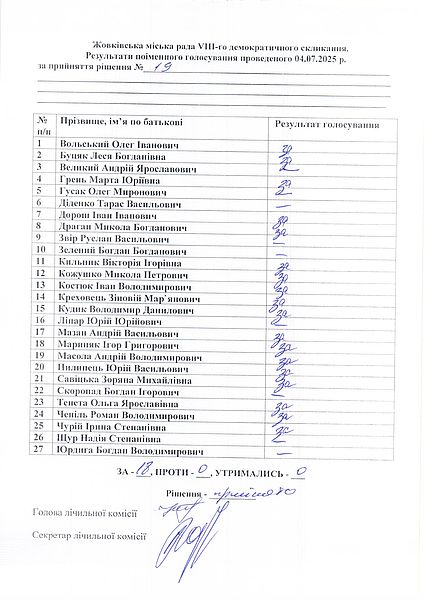 Жовківська міська рада VIII-го демократичного скликання.
Результати поіменного голосування проведеного 04.07.2025 р.
за прийняття рішення № 19
№ п/п Прізвище, ім’я по батькові Результат голосування
1 Вольський Олег Іванович за
2 Буцяк Леся Богданівна за
3 Великий Андрій Ярославович
4 Грень Марта Юріївна
5 Гусак Олег Миронович за
6 Діденко Тарас Васильович —
7 Дорош Іван Іванович
8 Драган Микола Богданович за
9 Звір Руслан Васильович за
10 Зелений Богдан Богданович —
11 Кильник Вікторія Ігорівна за
12 Кожушко Микола Петрович за
13 Костюк Іван Володимирович за
14 Креховець Зіновій Мар`янович за
15 Кудик Володимир Данилович за
16 Ліпар Юрій Юрійович
17 Мазан Андрій Васильович за
18 Мариняк Ігор Григорович за
19 Масола Андрій Володимирович за
20 Пилипець Юрій Васильович за
21 Савіцька Зоряна Михайлівна за
22 Скоропад Богдан Ігорович —
23 Тенета Ольга Ярославівна за
24 Чепіль Роман Володимирович за
25 Чурій Ірина Степанівна за
26 Щур Надія Степанівна —
27 Юрдига Богдан Володимирович —
ЗА - 18, ПРОТИ - 0, УТРИМАЛИСЬ - 0
Рішення - прийнято
Голова лічильної комісії
Секретар лічильної комісії